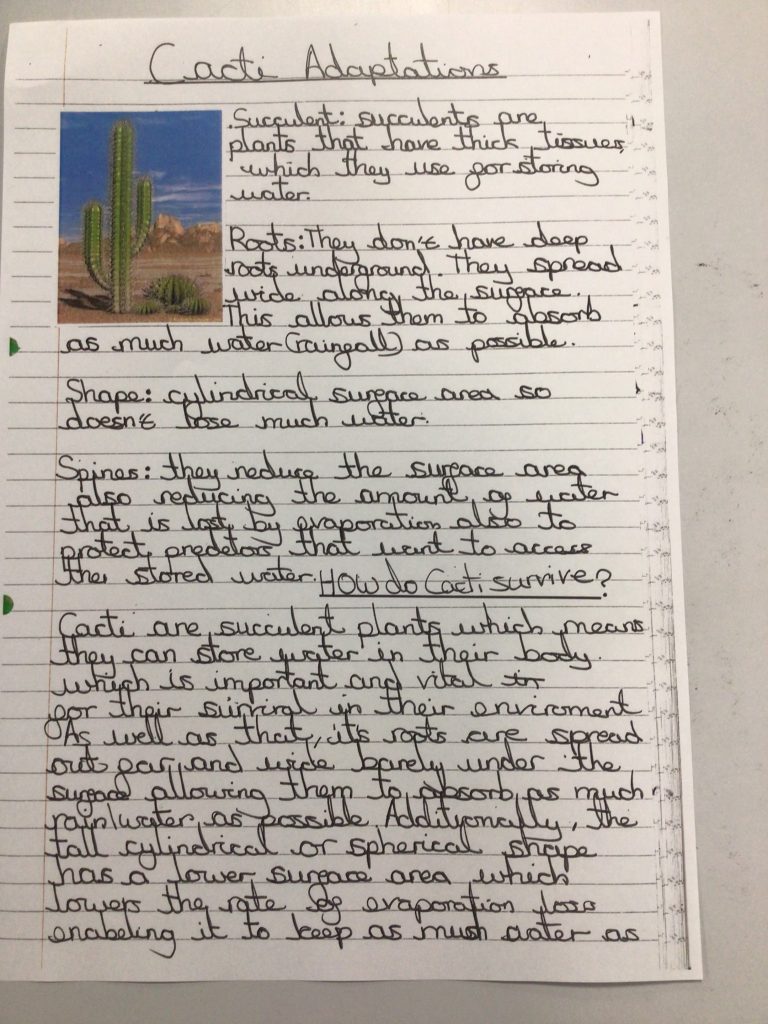 Cacti Adaptations
Succulent: succulents are
plants that have thick tissues,
which they use for storing
water.
Roots: They don't have deep
roots underground. They spread
wide along the surface.
This allows them to absorb
as much water (rainfall) as possible.
Shape: cylindrical surface area so
doesn't lose much water.
Spines: they reduce the surface area
also reducing the amount of water
that is lost by evaporation also to
protect predetors that want to access
the stored water.
How do Cacti survive?
Cacti are succulent plants which means
they can store water in their body.
which is important and vital
for their survival in their enviroment
As well as that, it's roots are spread
out far and wide barely under the
surface allowing them to absorb as much
rain/water as possible. Additionally, the
tall cylindrical or spherical shape
has a lower surface area which
lowers the rate of evaporation loss
enabeling it to keep as much water as